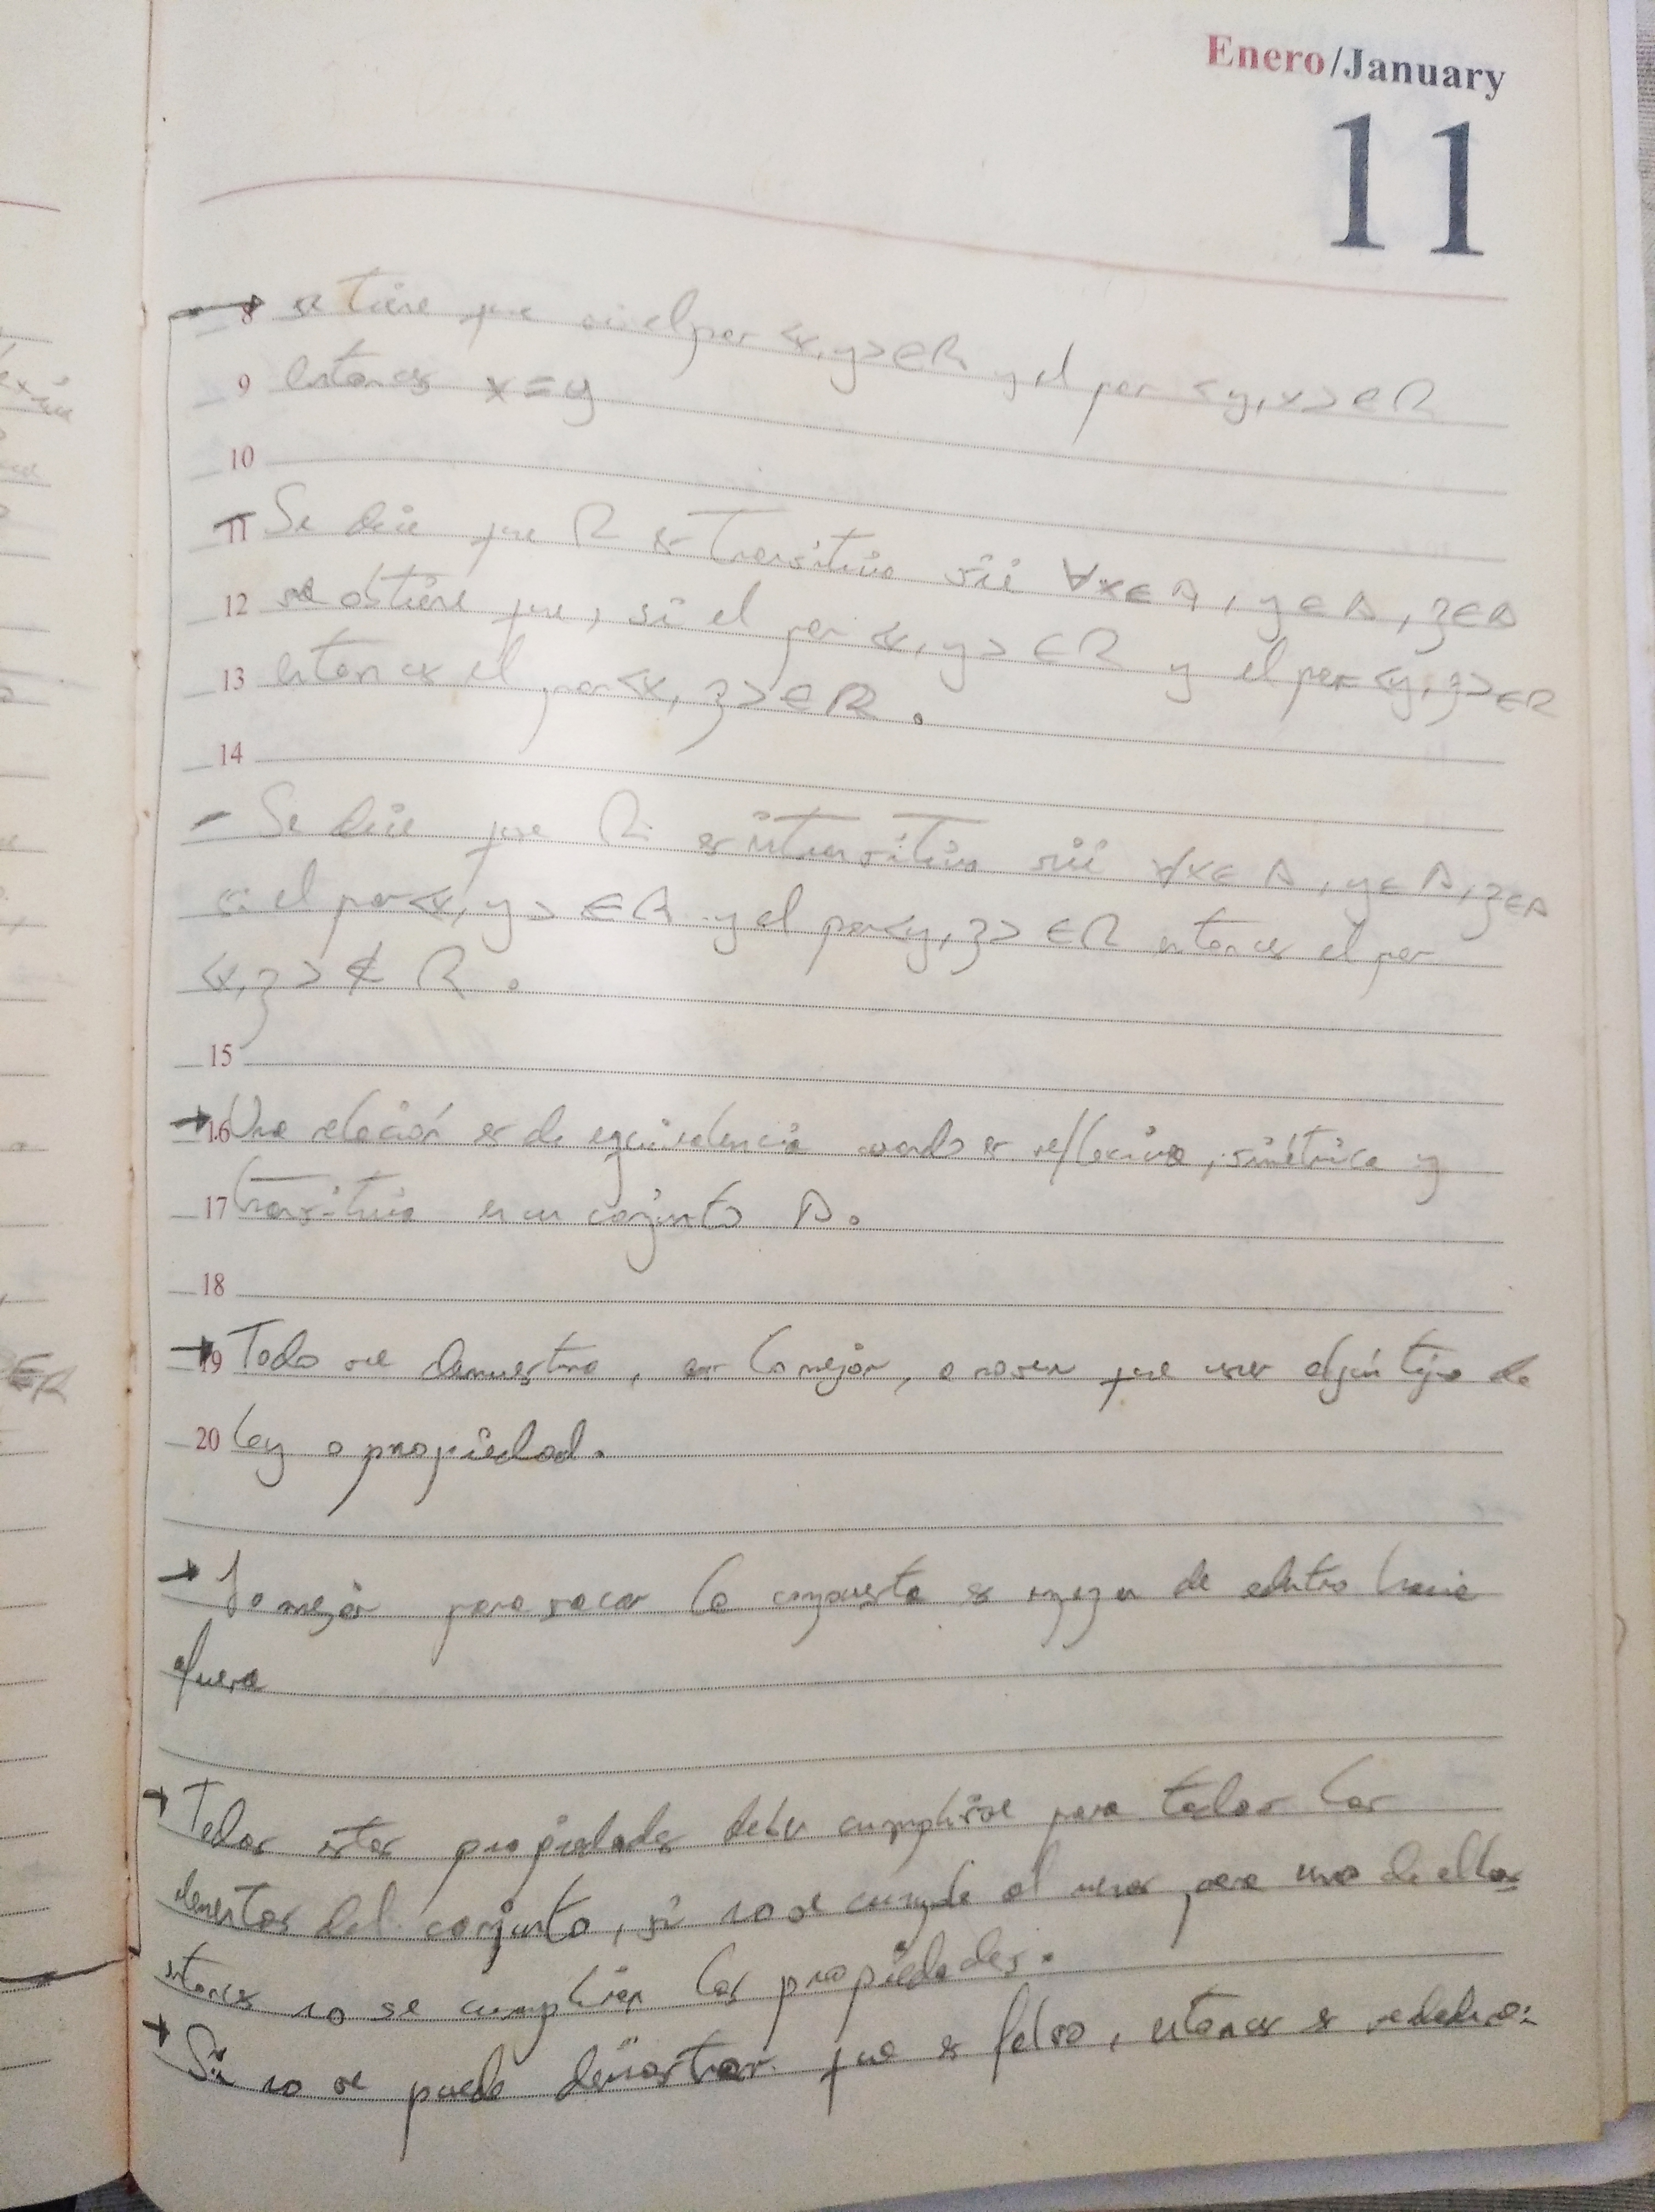 Enero/January
11
8 se tiene que si el par <x,y>∈R y el par <y,x>∈R
9 entonces x=y
10
11 Se dice que R es transitiva sii ∀x∈A, y∈A, z∈A
12 se obtiene que, si el par <x,y>∈R y el par <y,z>∈R
13 entonces el par <x,z>∈R.
14
- Se dice que R es intransitiva sii ∀x∈A, y∈A, z∈A
si el par <x,y>∈R y el par <y,z>∈R entonces el par
<x,z>∉R.
15
→ 16 Una relación es de equivalencia cuando es reflexiva, simétrica y
17 transitiva en un conjunto A.
18
→ 19 Todo se demuestra, es lo mejor, a no ser que uses algún tipo de
20 ley o propiedad.
→ Lo mejor para sacar la compuesta es empezar de adentro hacia
afuera
→ Todas estas propiedades deben cumplirse para todos los
elementos del conjunto, si no se cumple al menos para uno de ellos
entonces no se cumplirían las propiedades.
→ Si no se puede demostrar que es falso, entonces es verdadero.
∈R